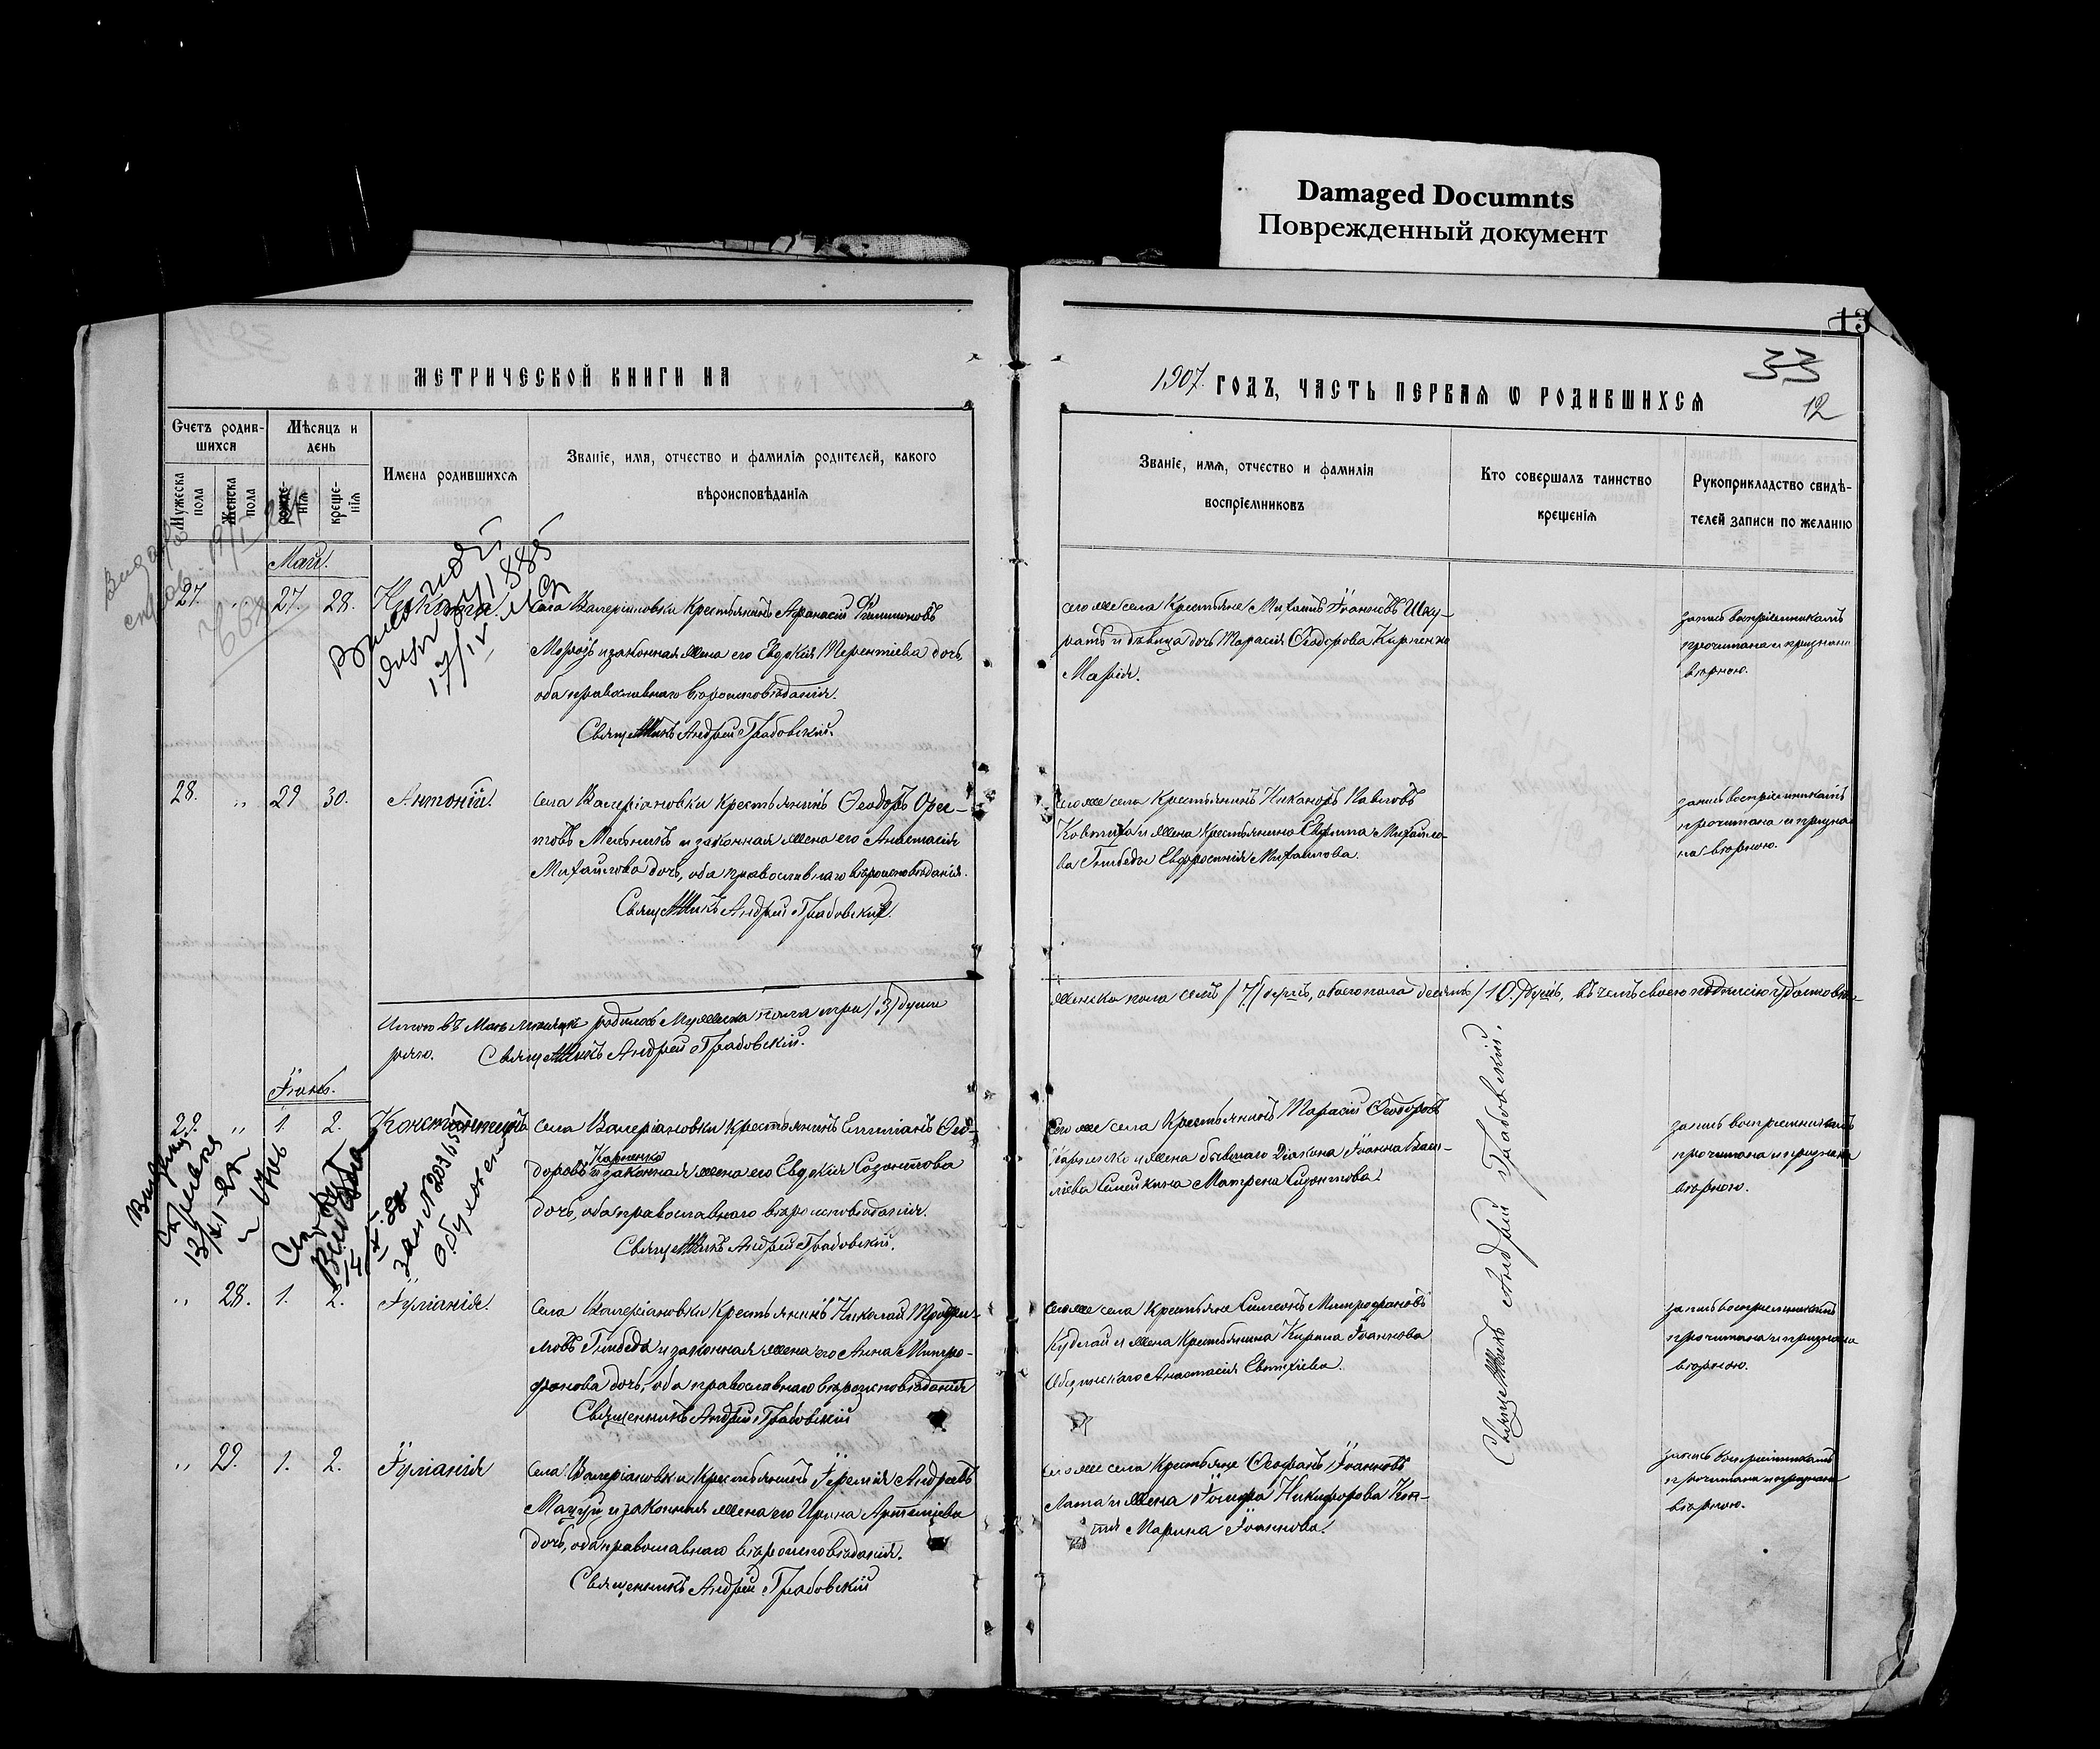 Damaged Documnts
Поврежденный документ
13
33
12
МЕТРИЧЕСКОЙ КНИГИ НА
1907 ГОДЪ, ЧАСТЬ ПЕРВАЯ Ѡ РОДИВШИХСЯ
Счетъ родив-
шихся
Мѣсяцъ и
день
Мужеска
пола
Женска
пола
рожде-
нія
креще-
нія
Имена родившихся
Званіе, имя, отчество и фамилія родителей, какого
вѣроисповѣданія
Званіе, имя, отчество и фамилія
воспріемниковъ
Кто совершалъ таинство
крещенія
Рукоприкладство свидѣ-
телей записи по желанію
Май.
27. " 27. 28. Никита
Села Валеріановки Крестьянинъ Афанасій Филимоновъ
Морозъ и законная жена его Евдокія Терентіева дочь,
оба православнаго вѣроисповѣданія.
Священникъ Андрей Грабовскій.
того же села Крестьяне Михаилъ Іоанновъ Шку-
ратъ и дѣвица дочь Тарасія Ѳеодорова Карпенко
Марія.
запись воспріемникамъ
прочитана и признана
вѣрною.
28. " 29 30. Антоній.
Села Валеріановки Крестьянинъ Ѳеодоръ Орес-
товъ Мельникъ и законная жена его Анастасія
Михаилова дочь, оба православнаго вѣроисповѣданія.
Священникъ Андрей Грабовскій.
того же села Крестьянинъ Никаноръ Павловъ
и жена Крестьянина Михайло-
ва Гнибеды Евфросинія Михаилова.
запись воспріемникамъ
прочитана и призна-
на вѣрною.
Итого въ Маѣ мѣсяцѣ родилось Мужеска пола три /3/ души
женска пола семь /7/ душъ, обоего пола десять /10/ душъ, въ чемъ своею подписью удостовѣ-
ряю. Священникъ Андрей Грабовскій.
Іюнь.
29. " 1. 2. Константинъ.
Села Валеріановки Крестьянинъ Стефанъ Ѳео-
Карпенко
доровъ и законная жена его Евдокія Созонтова
дочь, оба православнаго вѣроисповѣданія.
Священникъ Андрей Грабовскій.
того же села Крестьянинъ Тарасій Ѳеодоровъ
Карпенко и жена бывшаго Діакона Іоанна Васи-
ліева Матрена Сизонтова.
запись воспріемникамъ
прочитана и признана
вѣрною.
Выдано
13/XI-27
14/X-88
Зап N 20316
Обухович
" 28. 1. 2. Іуліанія.
Села Валеріановки Крестьянинъ Николай Трофи-
мовъ Гнибеда и законная жена его Анна Митро-
фанова дочь, оба православнаго вѣроисповѣданія
Священникъ Андрей Грабовскій
того же села Крестьяне Симеонъ Митрофановъ
Кудлай и жена Крестьянина Кирила Іоаннова
Анастасія Евтихіева.
запись воспріемникамъ
прочитана и признана
вѣрною.
" 29. 1. 2. Іуліанія
Села Валеріановки Крестьянинъ Іеремія Андреевъ
Мацуй и законная жена его Ирина Артеміева
дочь, оба православнаго вѣроисповѣданія.
Священникъ Андрей Грабовскій
того же села Крестьяне Ѳеофанъ Іоанновъ
Лата и жена Никифорова Кон-
тя Марина Іоаннова.
запись воспріемникамъ
прочитана и признана
вѣрною.
Священникъ Андрей Грабовскій.